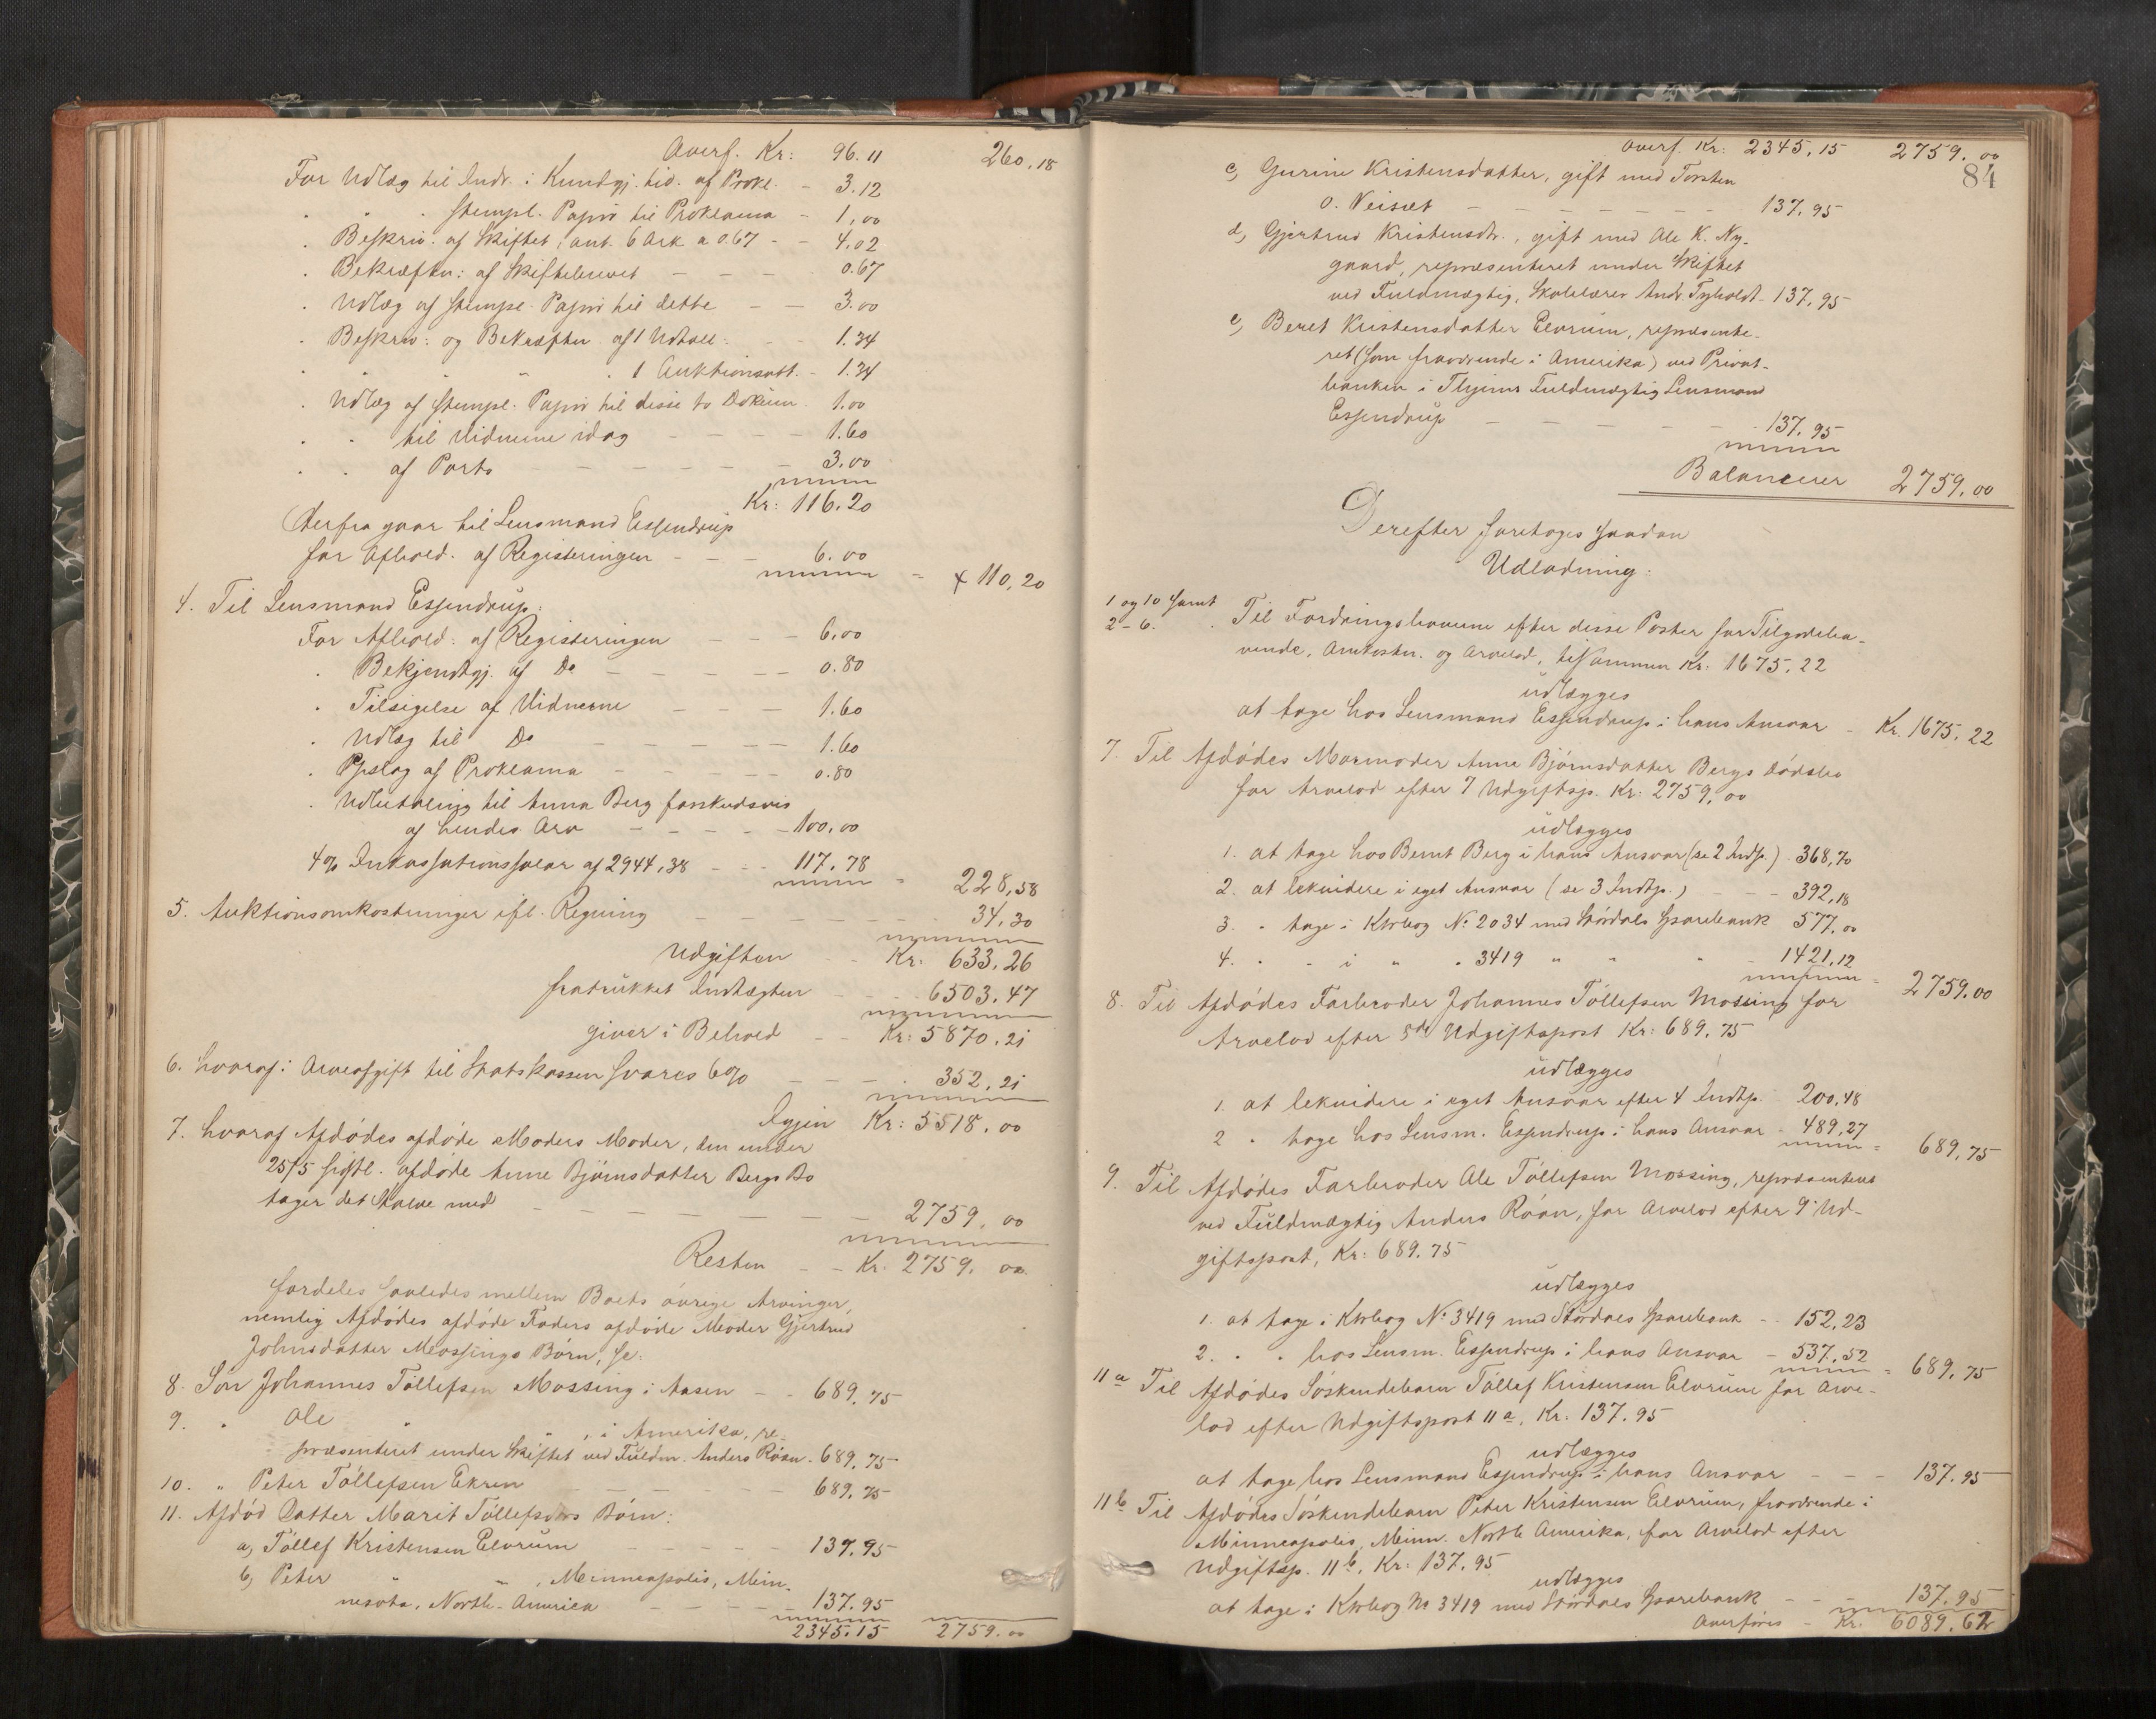 Overf. Kr: 96.11 260,18
For Udlæg til Indr. i Kundgj. tid. af Prokl. - 3.12
" " " Stempl. Papir til Proklama - 1,00
" Beskriv. af Skiftet, ant. 6 Ark a 0.67 - - 4.02
" Bekræftn: af Skiftebrevet - - - 0.67
" Udlæg af Stempl. Papir til dette - - 3.00
" Beskriv: og Bekræftn af 1 Udtall: - - 1.34
" " " " 1 Auktionsatt. - 1.34
" Udlæg af Stempl. Papir til disse to Dokum. 1.00
" " til Vidnerne idag - - - - 1.60
" " af Porto - - - - - - 3.00
Kr: 116.20
Herfra gaar til Lensmand Essendrup
for Afhold. af Registeringen - - - 6.00
= 110,20
4. Til Lensmand Essendrup:
For Afhold: af Registeringen - - - 6.00
" Bekjendtgj. af Do - - - - - 0.80
" Tilsigelse af Vidnerne - - - 1.60
" Udlæg til Do - - - - - 1.60
" Opslag af Proklama - - - - - 0.80
" Udbetaling til Anna Berg forskudsvis
af hendes Arv - - - - - 100,00
4% Inkassationssalær af 2944,38 - - - 117.78
= 228,58
5. Auktionsomkostninger ifl. Regning - - - - - - 34.30
Udgiften - - Kr: 633.26
fratrukket Indtægten - - - 6503.47
giver i Behold - - Kr: 5870.21
6. Hvoraf: Arveafgift til Statskassen svares 6% - - - 352.21
Igjen Kr: 5518.00
7. Hvoraf Afdødes afdøde Moders Moder, den under
25/5 sidstl. afdøde Anne Bjørnsdatter Bergs Bo
tager det Halve med - - - - - - - 2759.00
Resten - - Kr. 2759.00
fordeles saaledes mellem Boets øvrige Arvinger,
nemlig Afdødes afdøde Faders afdøde Moder Gjertrud
Johnsdatter Mossings Børn, se:
8. Søn Johannes Tøllefsen Mossing i Aasen - - 689,75
9. " Ole " " , i Amerika, re-
præsenteret under Skiftet ved Fuldm. Anders Røsn - 689,75
10. " Peter Tøllefsen Ekren - - - - - - 689.75
11. Afdød Datter Marit Tøllefsdtrs Børn:
a, Tøllef Kristensen Elvrum - - - - - 137.95
b, Peter " " , Minneapolis, Min-
nesota, North-America - - - - 137.95
2345.15 2759.00
Overf. Kr: 2345,15 2759.00
84
c, Gurine Kristensdatter, gift med Torsten
O. Veiset - - - - - - - - 137.95
d, Gjertrud Kristensdtr., gift med Ole K. Ny-
gaard, repræsenteret under Skiftet
ved Fuldmægtig, Skolelærer Andr. Tyholdt - 137.95
e, Beret Kristensdatter Elvrum, repræsente-
ret (som fraværende i Amerika) ved Privat-
banken i Thjems Fuldmægtig Lensmand
Essendrup - - - - - - 137.95
Balancerer 2759,00
Derefter foretoges saadan
Udlodning:
1 og 10 samt
2-6. Til Fordringshaverne efter disse Poster for Tilgodeha-
vende, Omkostn. og Arvelod, tilsammen Kr: 1675,22
udlægges
at tage hos Lensmand Essendrup i hans Ansvar - Kr. 1675,22
7. Til Afdødes Mormoder Anne Bjørnsdatter Bergs Dødsbo
for Arvelod efter 7 Udgiftsp. Kr: 2759,00
udlægges
1. at tage hos Bernt Berg i hans Ansvar (se 2 Indtp.) - 368,70
2. at lekvidere i eget Ansvar (se 3 Indtp.) - - - 392,18
3. " tage i Ktrbog No 2034 med Størdals Sparebank 577.00
4. " - i " " 3419 " " " - 1421,12
= 2759.00
8. Til Afdødes Farbroder Johannes Tøllefsen Mossing for
Arvelod efter 8de Udgiftspost Kr: 689.75
udlægges
1. at lekvidere i eget Ansvar efter 4 Indtp. 200.48
2 " tage hos Lensm. Essendrup i hans Ansvar - 489,27
= 689,75
9. Til Afdødes Farbroder Ole Tøllefsen Mossing, repræsenteret
ved Fuldmægtig Anders Røsn, for Arvelod efter 9 Ud-
giftspost, Kr: 689.75
udlægges
1. at tage i Ktrbog No 3419 med Størdals Sparebank - - 152,23
2. " " hos Lensm. Essendrup i hans Ansvar - 537.52
= 689,75
11 a Til Afdødes Søskendebarn Tøllef Kristensen Elvrum for Arve-
lod efter Udgiftspost 11 a, Kr: 137.95
udlægges
at tage hos Lensmand Essendrup i hans Ansvar - - - 137.95
11 b Til Afdødes Søskendebarn Peter Kristensen Elvrum, fraværende i
Minneapolis, Minn. North Amerika, for Arvelod efter
Udgiftsp. 11 b, Kr: 137.95
udlægges
at tage i Ktrbog No 3419 med Størdals Sparebank - - - 137.95
Overføres - Kr. 6089.62